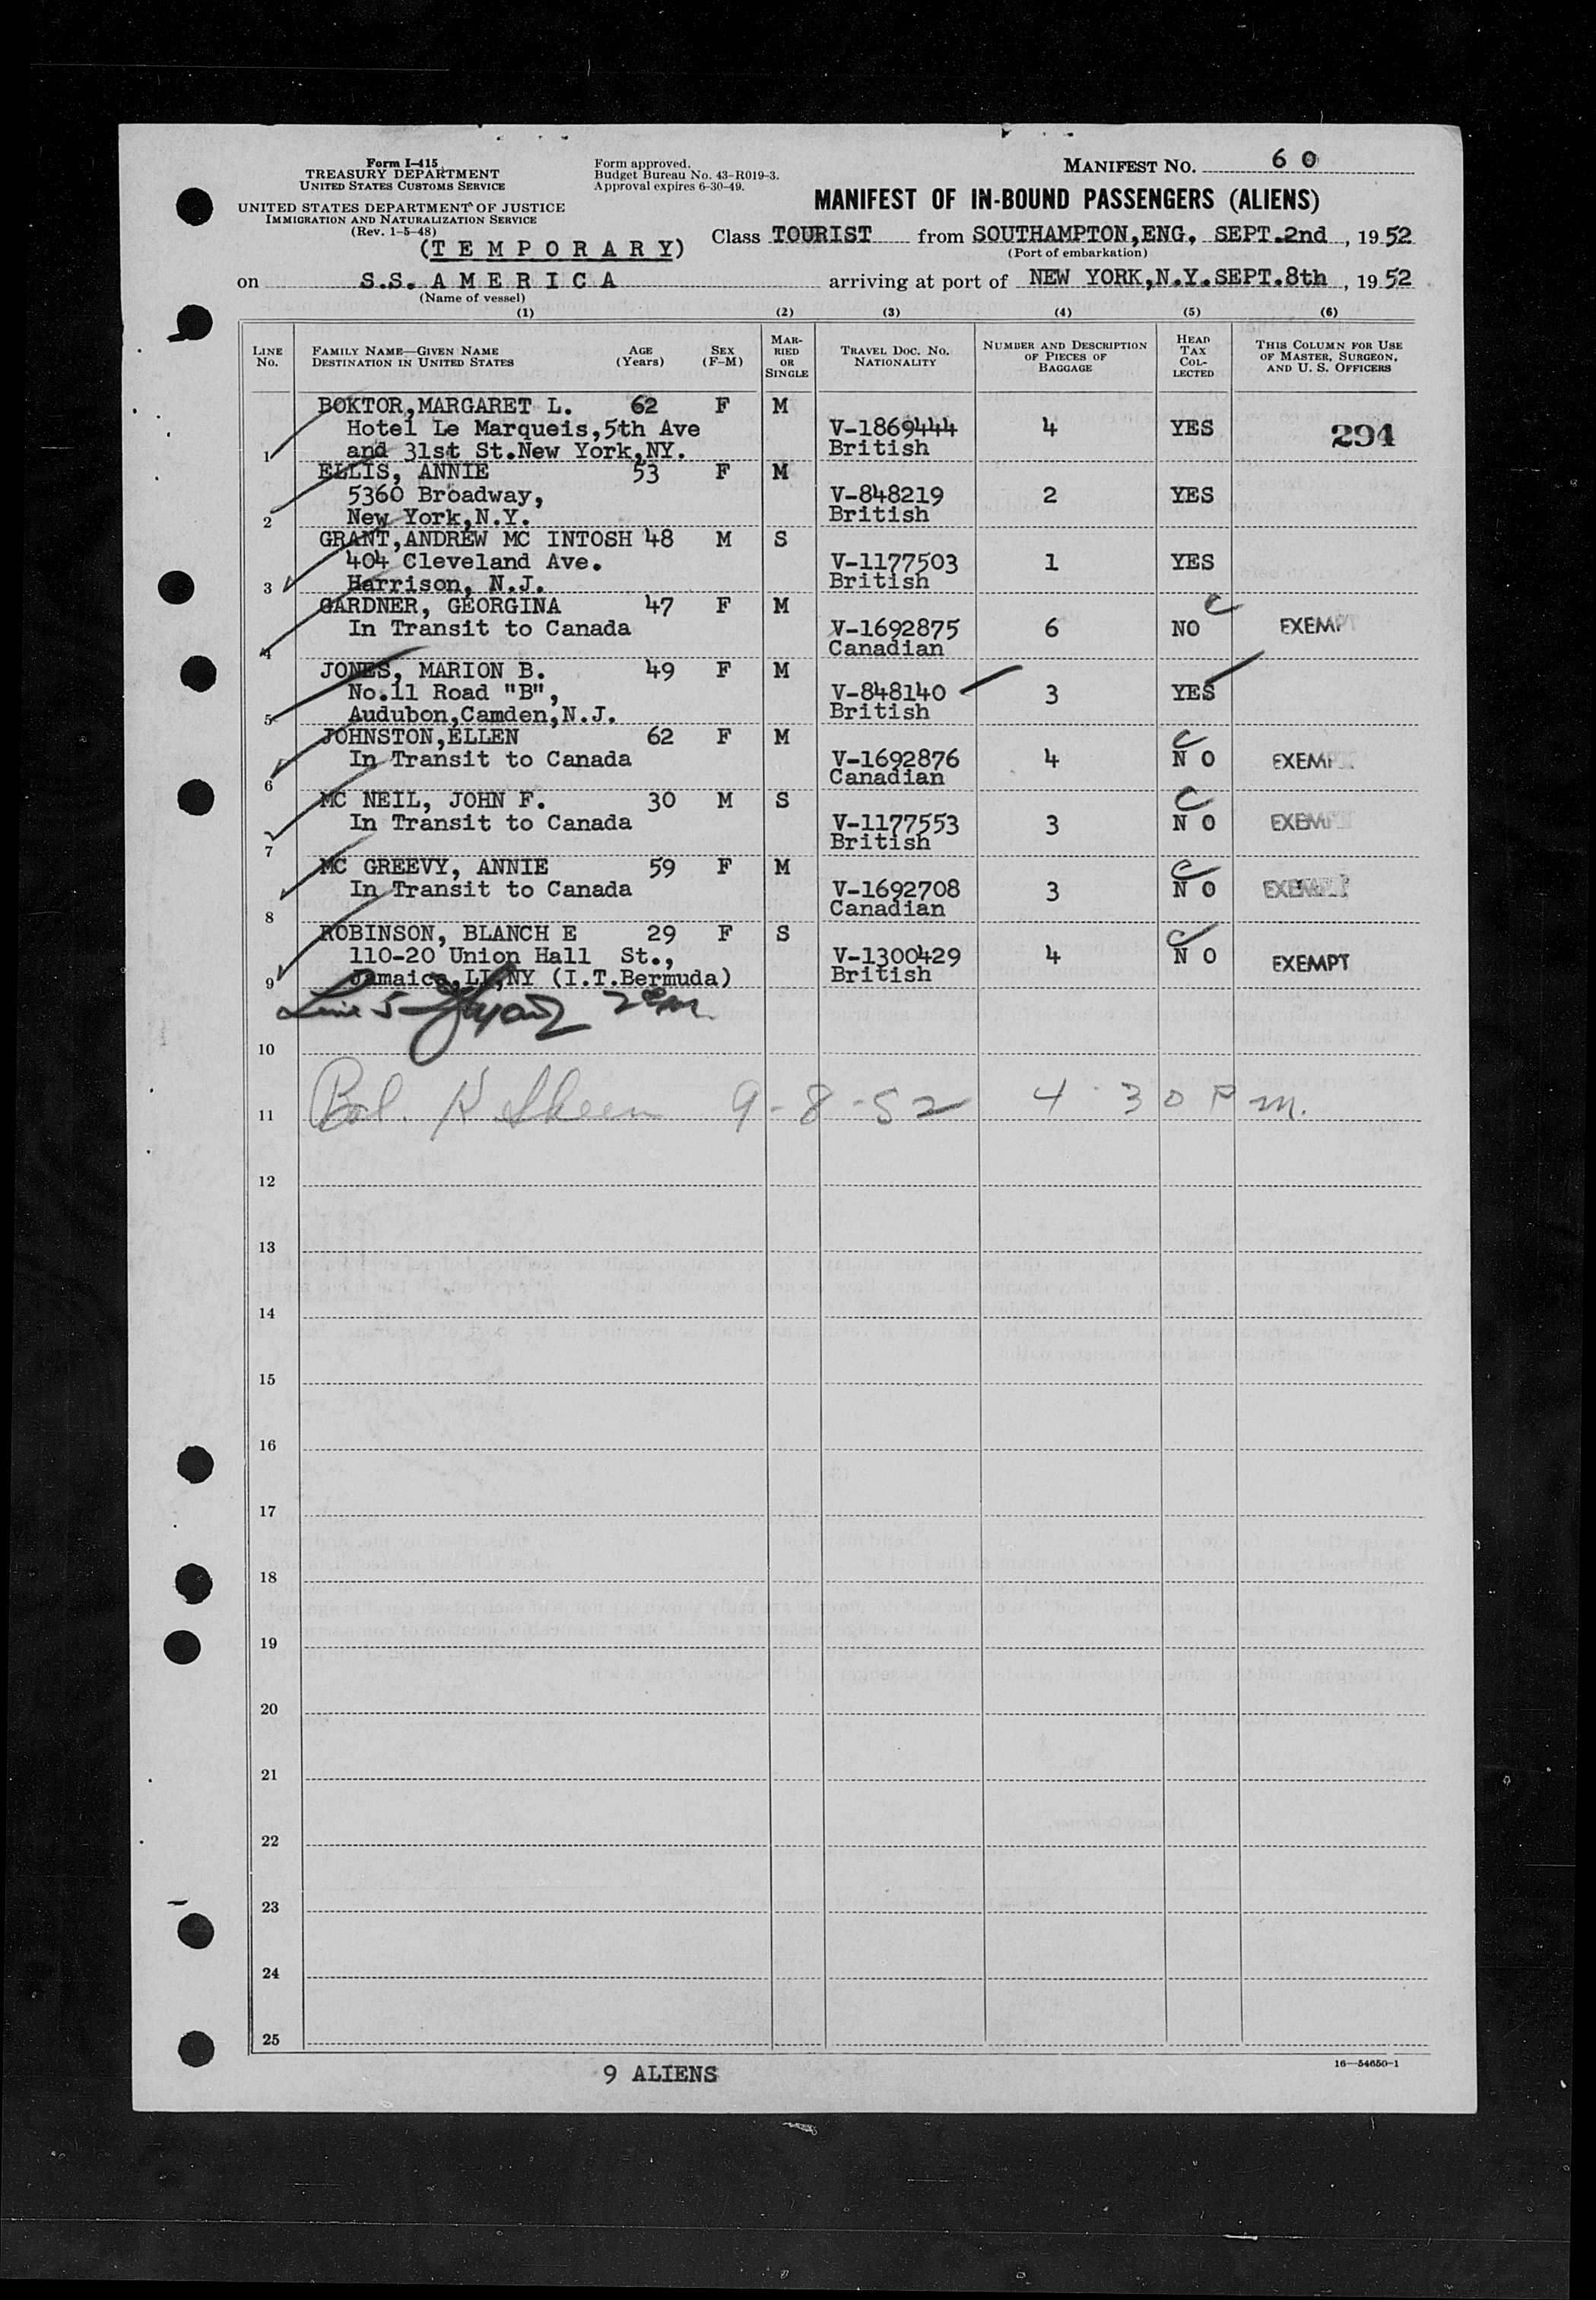 Form I-415
TREASURY DEPARTMENT
UNITED STATES CUSTOMS SERVICE
UNITED STATES DEPARTMENT OF JUSTICE
IMMIGRATION AND NATURALIZATION SERVICE
(Rev. 1-5-48)
Form approved.
Budget Bureau No. 43-R019-3.
Approval expires 6-30-49.
MANIFEST NO. 60
MANIFEST OF IN-BOUND PASSENGERS (ALIENS)
(T E M P O R A R Y)
Class TOURIST from SOUTHAMPTON,ENG, SEPT.2nd, 1952
(Port of embarkation)
on S.S. A M E R I C A arriving at port of NEW YORK,N.Y.SEPT.8th, 1952
(Name of vessel)
(1) (2) (3) (4) (5) (6)
LINE No. FAMILY NAME—GIVEN NAME DESTINATION IN UNITED STATES AGE (Years) SEX (F-M) MARRIED OR SINGLE TRAVEL DOC. NO. NATIONALITY NUMBER AND DESCRIPTION OF PIECES OF BAGGAGE HEAD TAX COLLECTED THIS COLUMN FOR USE OF MASTER, SURGEON, AND U. S. OFFICERS
BOKTOR,MARGARET L. 62 F M
Hotel Le Marqueis,5th Ave V-1869444 4 YES 294
1 and 31st St.New York,NY. British
ELLIS, ANNIE 53 F M
5360 Broadway, V-848219 2 YES
2 New York,N.Y. British
GRANT,ANDREW MC INTOSH 48 M S
404 Cleveland Ave. V-1177503 1 YES
3 Harrison, N.J. British
GARDNER, GEORGINA 47 F M
In Transit to Canada V-1692875 6 NO EXEMPT
4 Canadian
JONES, MARION B. 49 F M
No.11 Road "B", V-848140 3 YES
5 Audubon,Camden,N.J. British
JOHNSTON,ELLEN 62 F M
In Transit to Canada V-1692876 4 N O EXEMPT
6 Canadian
MC NEIL, JOHN F. 30 M S
In Transit to Canada V-1177553 3 N O EXEMPT
7 British
MC GREEVY, ANNIE 59 F M
In Transit to Canada V-1692708 3 N O EXEMPT
8 Canadian
ROBINSON, BLANCH E 29 F S
110-20 Union Hall St., V-1300429 4 N O EXEMPT
9 Jamaica,LI,NY (I.T.Bermuda) British
Line 5
10
11 Bal. 9-8-52 4 30 Pm.
12
13
14
15
16
17
18
19
20
21
22
23
24
25
9 ALIENS
16—54650-1